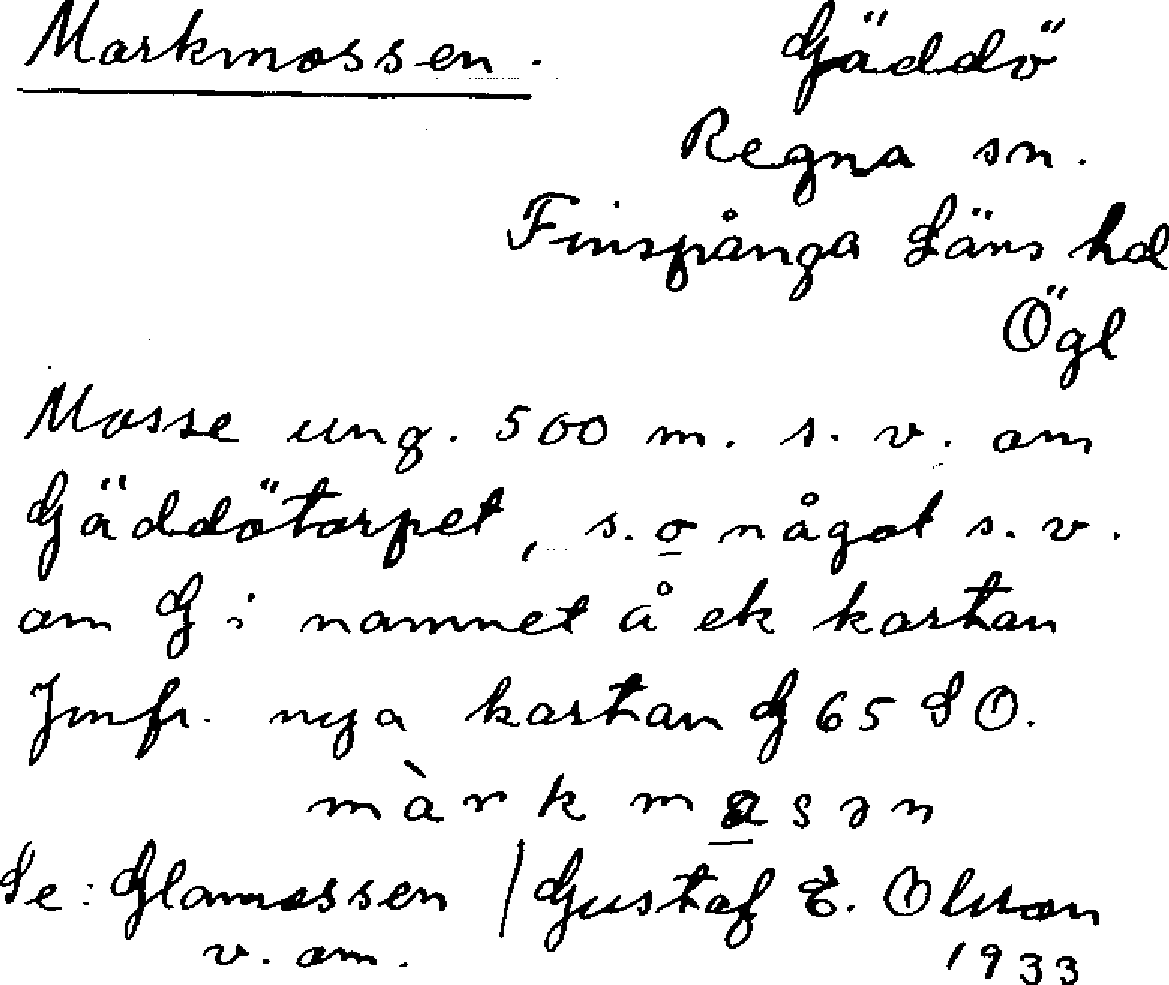 Markmossen.
Gäddö
Regna sn.
Finspånga Läns hd
Ögl
Mosse ung. 500 m. s. v. om
Gäddötorpet, s. o något s. v.
om G i namnet å ek kartan
Jmfr. nya kartan G 65 SO.
màrk mɑsən
Se: Glamossen / Gustaf E. Olsson
v. om. 1933